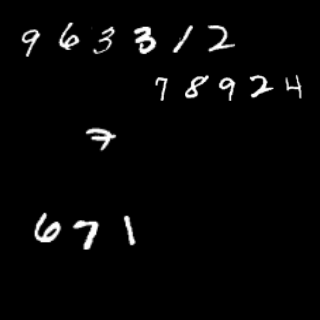 963312
78924
7
671